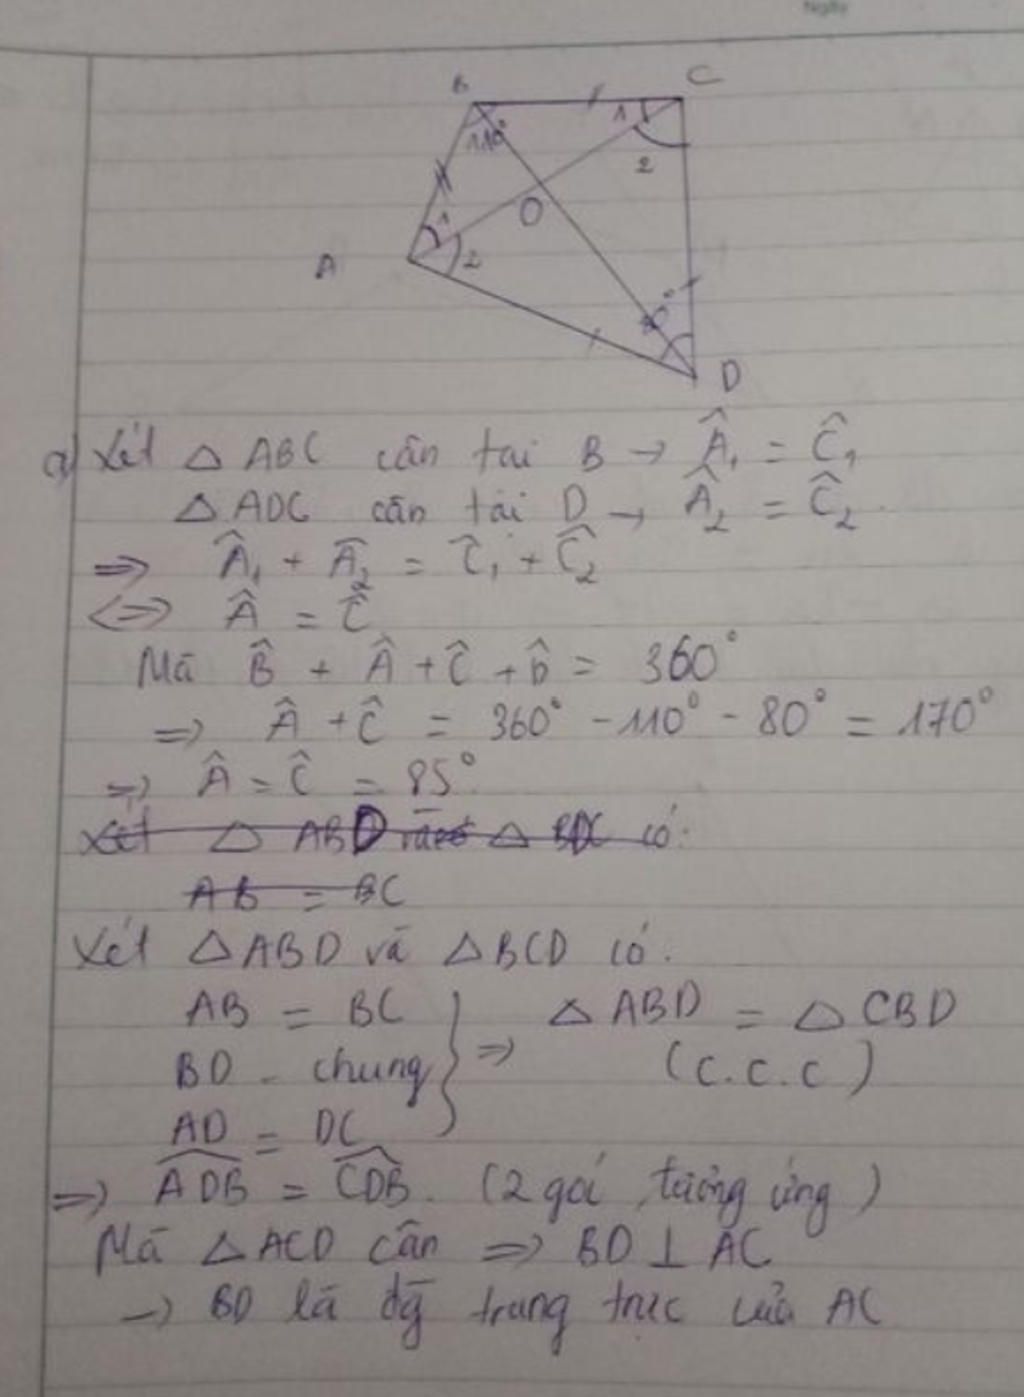 Ngày
B
C
110°
1
2
O
1
2
A
80°
D
a) Xét △ ABC cân tại B → Â₁ = Ĉ₁
△ ADC cân tại D → Â₂ = Ĉ₂.
⇒ Â₁ + Â₂ = Ĉ₁ + Ĉ₂
⇔ Â = Ĉ
Mà B̂ + Â + Ĉ + D̂ = 360°
⇒ Â + Ĉ = 360° - 110° - 80° = 170°
⇒ Â = Ĉ = 85°.
Xét △ ABD và △ BDC có:
AB = BC
Xét △ABD và △BCD có.
AB = BC
BD - chung
AD = DC
} ⇒ △ ABD = △ CBD
(c.c.c)
⇒ ADB̂ = CDB̂. (2 gói tương ứng)
Mà △ ACD cân ⇒ BD ⊥ AC
→ BD là đg̃ trung trực của AC